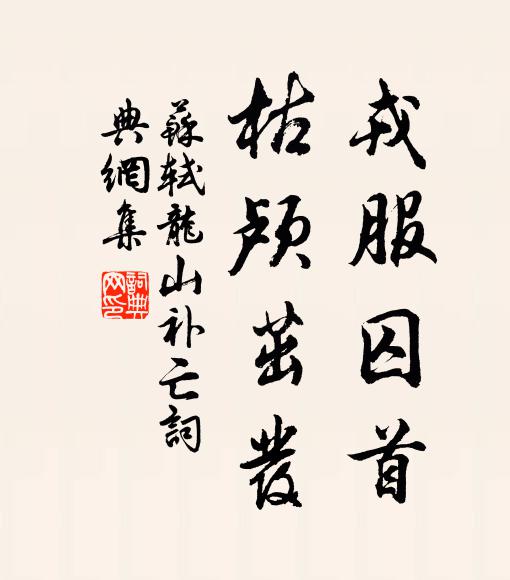 戎服囚首
枯颅茁發
蘇軾龍山补亡詞
典網集
詞典
网印